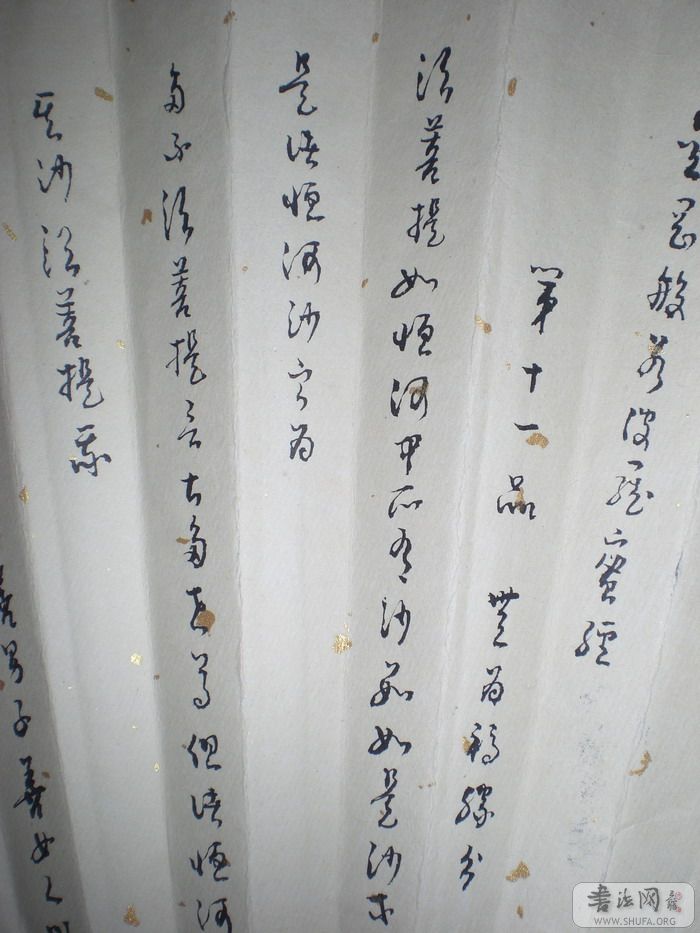 金剛般若波羅蜜經
第十一品 無為福勝分
須菩提如恒河中所有沙數如是沙等
是諸恒河沙寧為
多不須菩提言甚多世尊但諸恒河
其沙須菩提我
善男子善女人
書法网
WWW.SHUFA.ORG